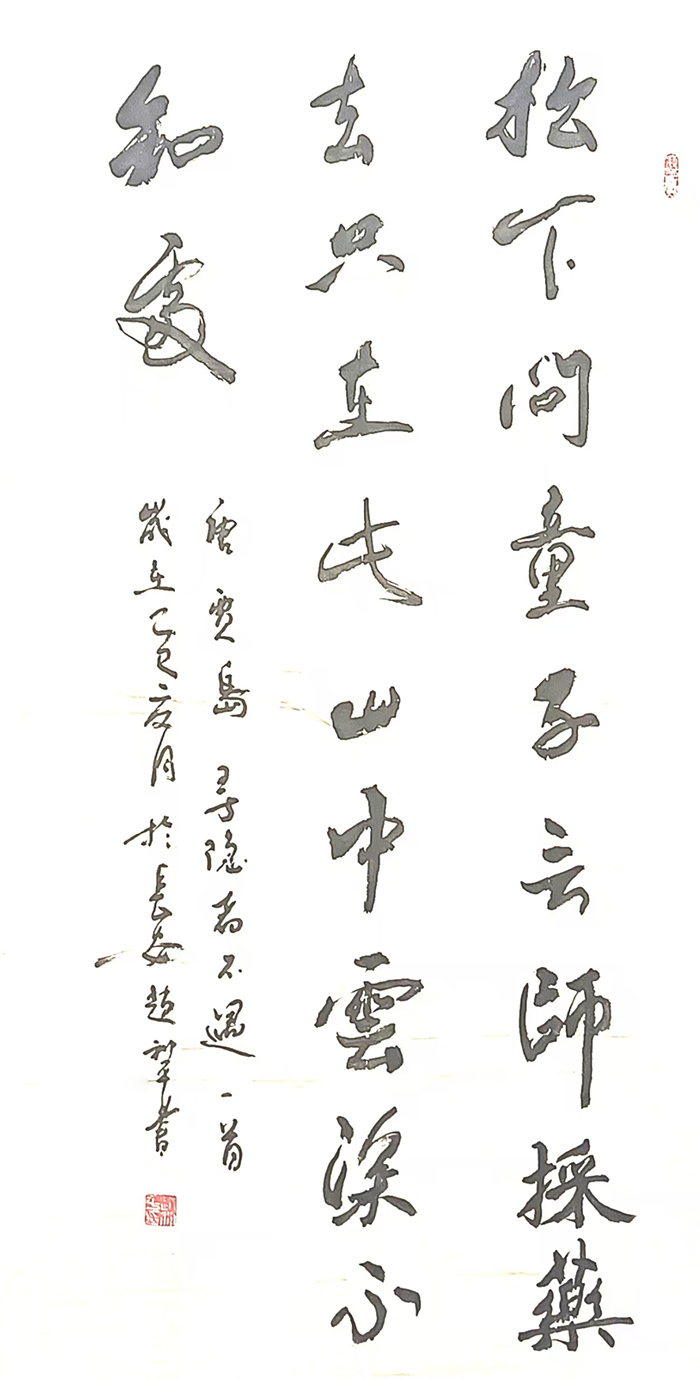 松下问童子云師採藥
去只在此山中雲深不
知處
唐賈島尋隐者不遇一首
歲在乙巳夏月於長安趙書